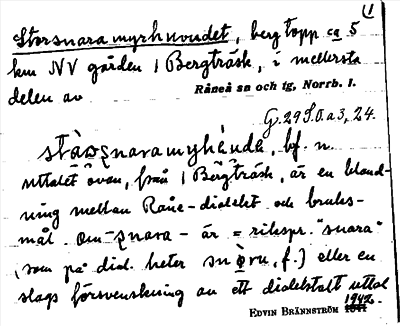 1
Storsnaramyrhuvudet, bergtopp ca 5
km NV gården 1 Bergträsk, i mellersta
delen av
Råneå sn och tg, Norrb. l.
G. 29 S. O. a 3, 24.
bf. n.
uttalet ovan, från 1 Bergträsk, är en bland-
ning mellan Råne-dialekt och bruks-
mål. Om -snara- är = rikspr. "snara"
(som på dial. heter f.) eller en
slags försvenskning av ett dialektalt uttal
EDVIN BRÄNNSTRÖM 1942.